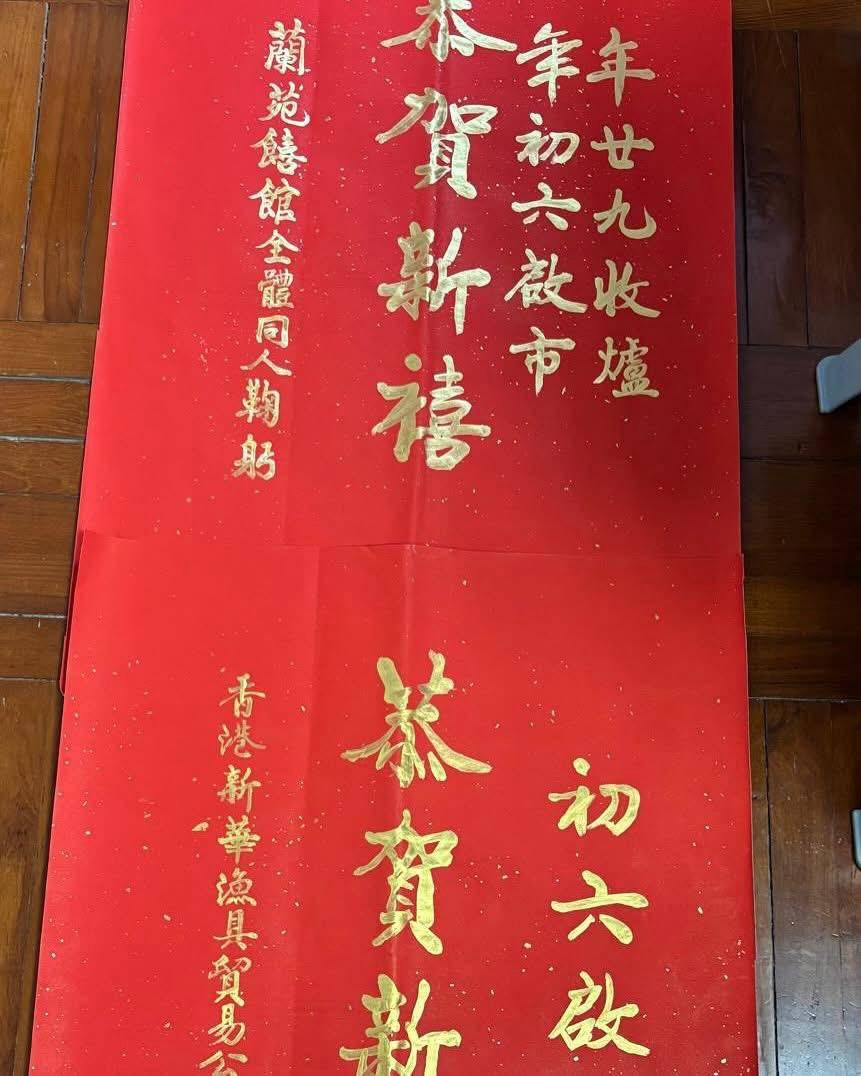 年廿九收爐
年初六啟市
恭賀新禧
蘭苑饎館全體同人鞠躬
初六啟
恭賀新
香港新華漁具貿易公